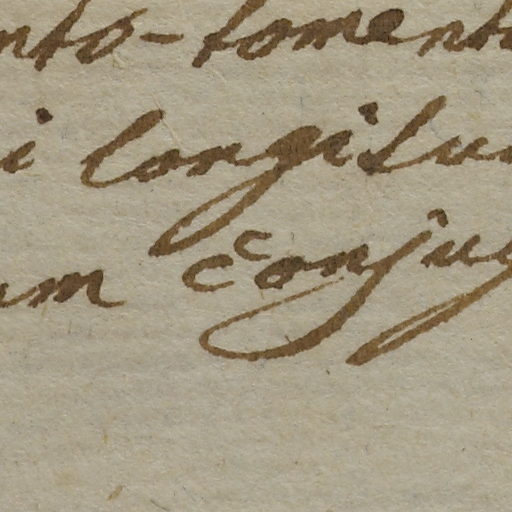 nto-toment
i longitu
um conjug